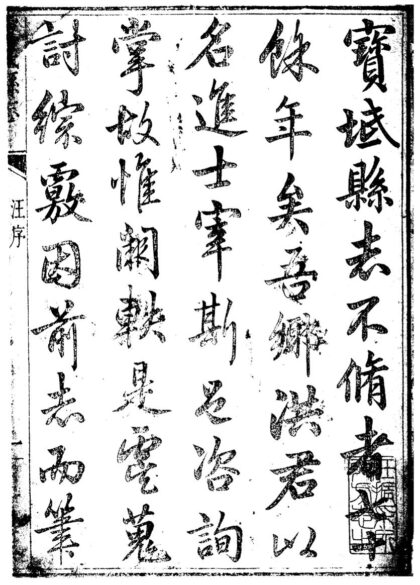 寶坻縣志不脩者七十
餘年矣吾鄉洪君以
名進士宰斯邑咨詢
掌故惟闕軼是虞蒐
討綜覈因前志而筆
汪序